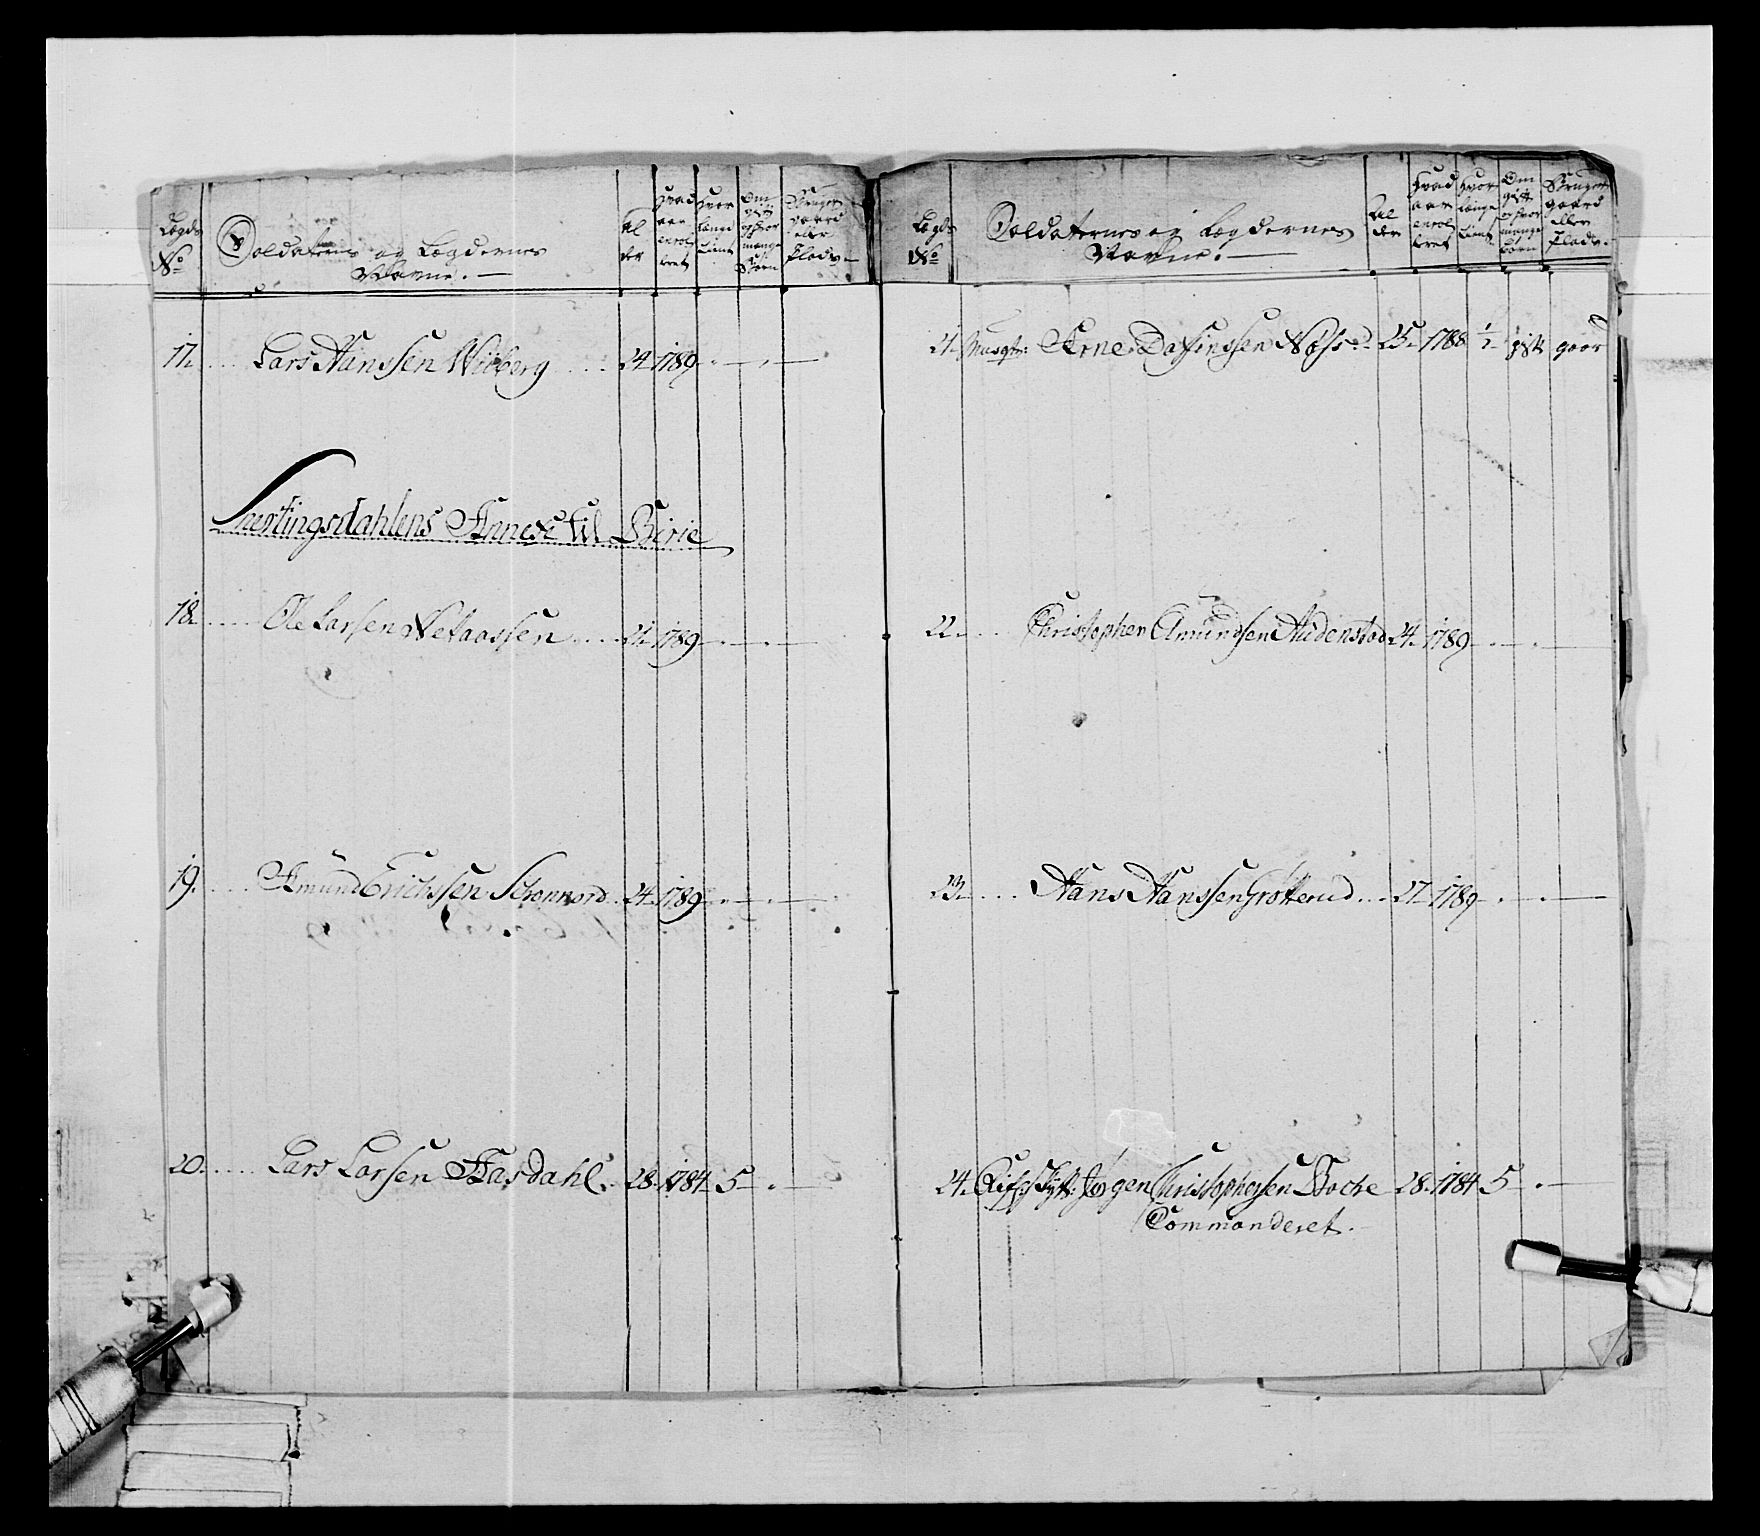 Lægds No
Soldaternes og Lægdernes Navne.
Al der
Hvad aar enrol leret
Hvor længe tient
Om gift og hvor mange Børn
gaard eller Plads
17. Lars Hanssen Wiberg 24 1789
Snertingsdahlens Annex til Birie
18. Ole Larsen 21 1789
19. Amund Erichssen 24 1789
20. Lars Larsen Aasdahl 28 1784 5
Lægds No
Soldaternes og Lægdernes Navne.
Al der
Hvad aar enrol leret
Hvor længe tient
Om gift og hvor mange børn
gaard eller Plads
21. Musqt: Arne 25 1788 1/2 gift gaard
22. Christopher Amundsen Audenstad 24 1789
23. Hans Hanssen Grøtterud 27 1789
24. Jørgen Christophersen 28 1784 5
Commanderet.